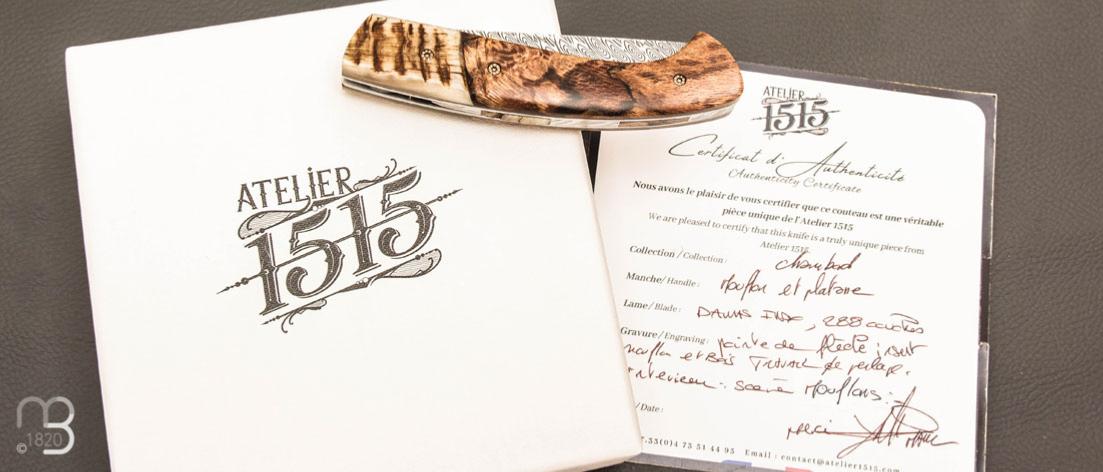 ATELIER
1515
ATELIER
1515
Certificat d'Authenticité
Authenticity Certificate
Nous avons le plaisir de vous certifier que ce couteau est une véritable
pièce unique de l'Atelier 1515
We are pleased to certify that this knife is a truly unique piece from
Atelier 1515
Collection / Collection : chambord
Manche / Handle : Mouflon et platane
Lame / Blade : DAMAS INOX, 288 couches
Gravure / Engraving : pointe de flèche sur
mouflon et Bois Travail de perlage.
interieur : scène Mouflons
/ Date :
merci
.33(0)4 73 51 44 95 Email : contact@atelier1515.com
MB
©1820